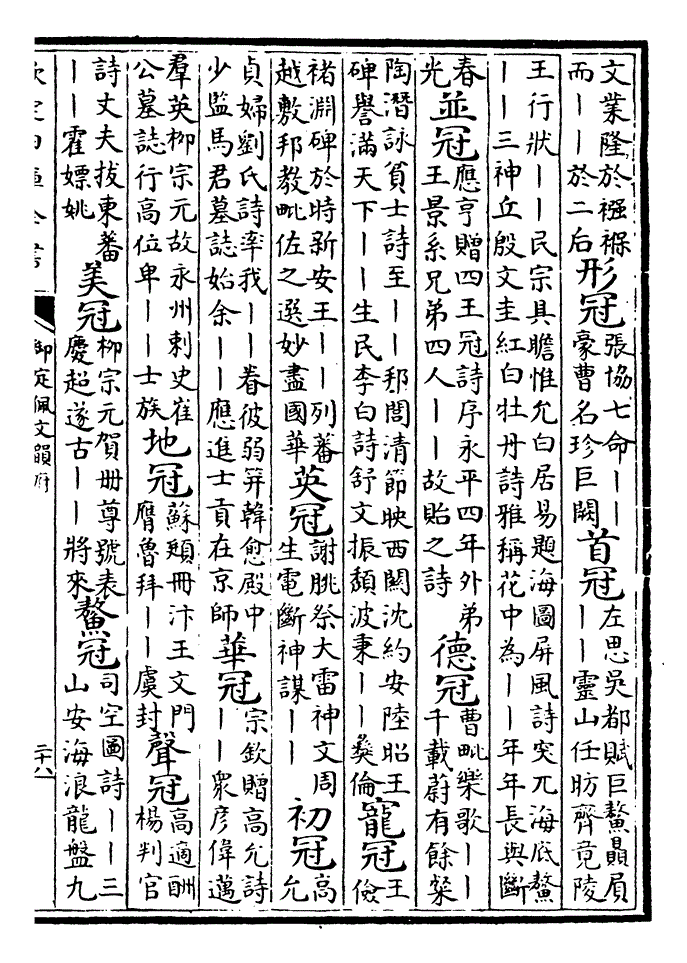 文業隆於襁褓
而——於二后
形冠
張協七命——
豪曹名珍巨闕
首冠
左思吳都賦巨鰲贔屓
——靈山任昉齊竟陵
王行狀——民宗具瞻惟允白居易題海圖屏風詩突兀海底鰲
——三神丘殷文圭紅白牡丹詩雅稱花中為——年年長與斷
春
光
並冠
應亨贈四王冠詩序永平四年外弟
王景系兄弟四人——故貽之詩
德冠
曹毗樂歌——
千載蔚有餘粲
陶潛詠貧士詩至——邦閭清節映西關沈約安陸昭王
碑譽滿天下——生民李白詩舒文振頹波秉——彝倫
寵冠
王
儉
褚淵碑於時新安王——列蕃
越敷邦教毗佐之選妙盡國華
英冠
謝朓祭大雷神文周
生電斷神謀——
初冠
高
允
貞婦劉氏詩率我——眷彼弱笄韓愈殿中
少監馬君墓誌始余——應進士貢在京師
華冠
宗欽贈高允詩
——衆彦偉邁
羣英柳宗元故永州刺史崔
公墓誌行高位卑——士族
地冠
蘇頲冊汴王文門
膺魯拜——虞封
聲冠
高適酬
楊判官
詩丈夫拔東蕃
——霍嫖姚
美冠
柳宗元賀冊尊號表
慶超遂古——將來
鰲冠
司空圖詩——三
山安海浪龍盤九
欽定四庫全書
御定佩文韻府
二十八